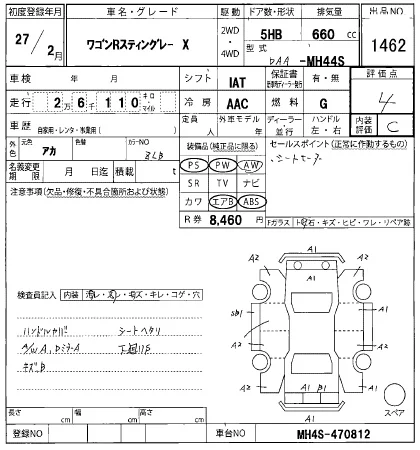 初度登録年月 車名・グレード 駆動 ドア数・形状 排気量 出品NO
27/2月 ワゴンRスティングレー X 2WD・4WD 5HB 660 cc 1462
型式 DAA-MH44S
車検 年 月 シフト IAT 保証書 有・無 評価点
走行 2万6千110 キロ・マイル 冷房 AAC 燃料 G 4
車歴 自家用・レンタ・事業用( ) 定員 人 外車モデル 年 ディーラー・並行 ハンドル 左・右 内装評価 C
外色 元色 アカ 色替 カラーNO ZLB
装備品(純正品に限る) セールスポイント(正常に作動するもの)
名義変更期限 月 日迄 積載 t
PS PW AW ・シートヒーター
注意事項(欠品・修復・不具合箇所および状態)
SR TV ナビ
カワ エアB ABS
R券 8,460円
Fガラス トビ石・キズ・ヒビ・ワレ・リペア跡
A1
A2 A2
A1
検査員記入 内装 汚レ・スレ・コゲ・穴
SB1 A2
ハンドルカバー シートヘタリ
A/WA、DミラーA 下廻りS
キズB
A2 A2
A1 B1
A1
スペア
長さ cm 幅 cm 高さ cm
登録NO 車台NO MH4S-470812